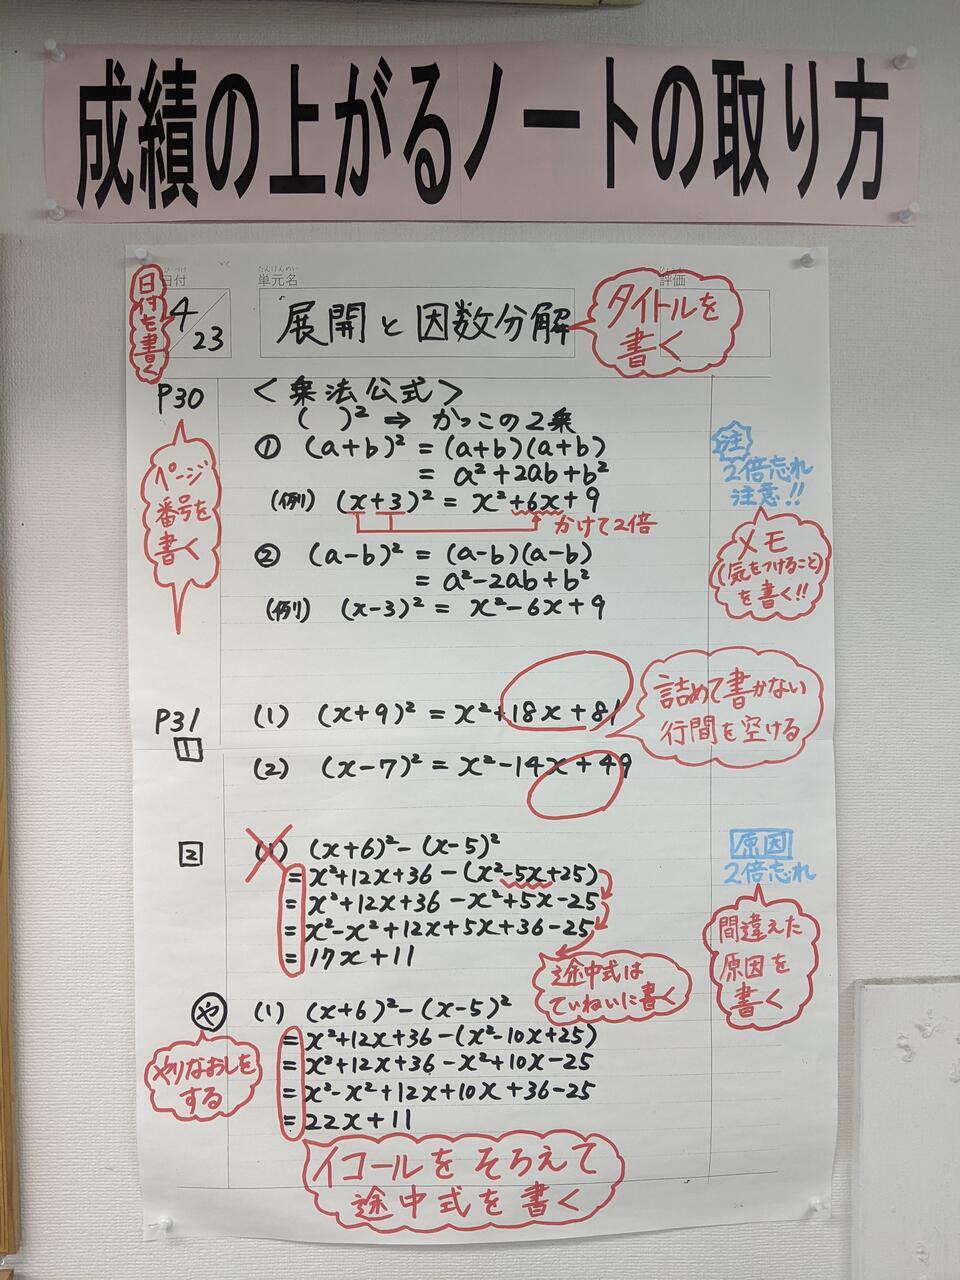 成績の上がるノートの取り方
日付
単元名
評価
日付を書く
4/23
展開と因数分解
タイトルを書く
P30
<乗法公式>
( )² ⇒ かっこの2乗
① (a+b)² = (a+b)(a+b)
= a²+2ab+b²
(例) (x+3)² = x²+6x+9
かけて2倍
② (a-b)² = (a-b)(a-b)
= a²-2ab+b²
(例) (x-3)² = x²-6x+9
ページ
番号を
書く
注
2倍忘れ
注意!!
メモ
(気をつけること)
を書く!!
P31
1
(1) (x+9)² = x²+18x+81
(2) (x-7)² = x²-14x+49
詰めて書かない
行間を空ける
2
(1) (x+6)²-(x-5)²
= x²+12x+36-(x²-5x+25)
= x²+12x+36-x²+5x-25
= x²-x²+12x+5x+36-25
= 17x+11
原因
2倍忘れ
間違えた
原因を
書く
途中式は
ていねいに書く
や
(1) (x+6)²-(x-5)²
= x²+12x+36-(x²-10x+25)
= x²+12x+36-x²+10x-25
= x²-x²+12x+10x+36-25
= 22x+11
やりなおしを
する
イコールをそろえて
途中式を書く